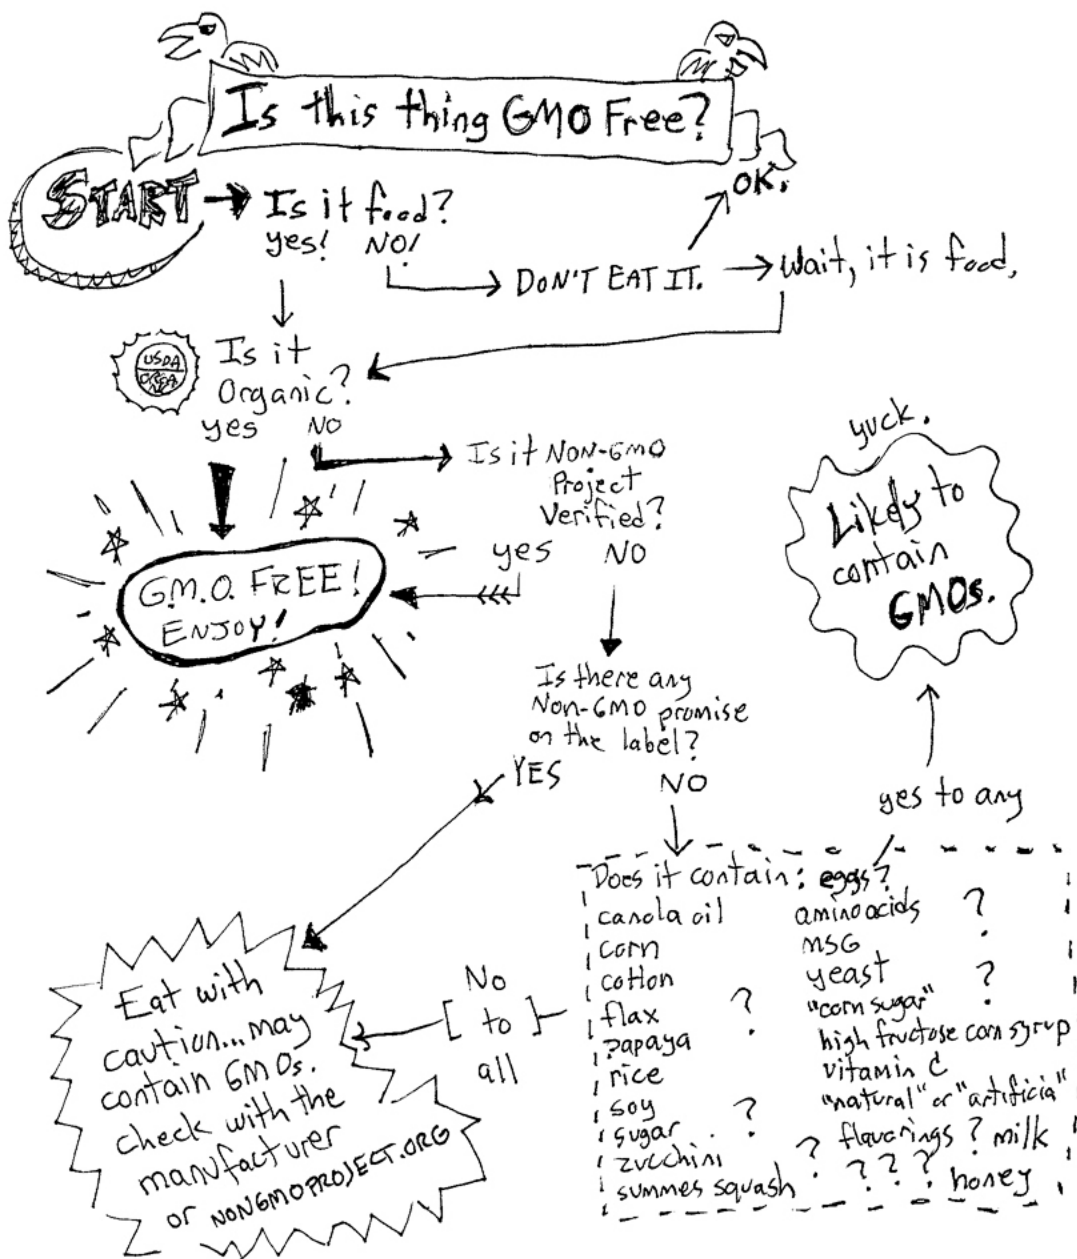 Is this thing GMO Free?
START
Is it food?
Yes! NO!
OK.
DON'T EAT IT.
Wait, it is food.
USDA
ORGA
NIC
Is it
Organic?
yes NO
Is it NON-GMO
Project
Verified?
yes NO
G.M.O. FREE!
ENJOY!
yuck.
Likely to
contain
GMOs.
Is there any
Non-GMO promise
on the label?
YES NO
yes to any
Does it contain: eggs?
canola oil
corn
cotton
flax ?
papaya
rice
soy
sugar ?
zucchini
summes squash
aminoacids ?
MSG
yeast ?
"corn sugar"
high fructose corn syrup
vitamin C
"natural" or "artificial"
flavorings ? milk
? ? ? ? honey
No
to
all
Eat with
caution...may
contain GMOs.
check with the
manufacturer
or NONGMOPROJECT.ORG